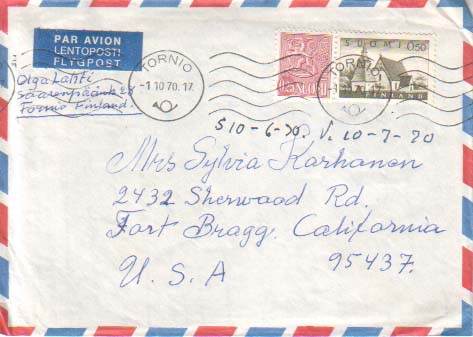 PAR AVION
LENTOPOSTI
FLYGPOST
Olga Lahti
Tornio Finland.
TORNIO
-1.10.70.17
TORNIO
SUOMI 0,50
FINLAND
S 10-6-70. V. 10-7-70
Mrs Sylvia Karhanon
2432 Sherwood Rd.
Fort Bragg. California
95437.
U.S.A